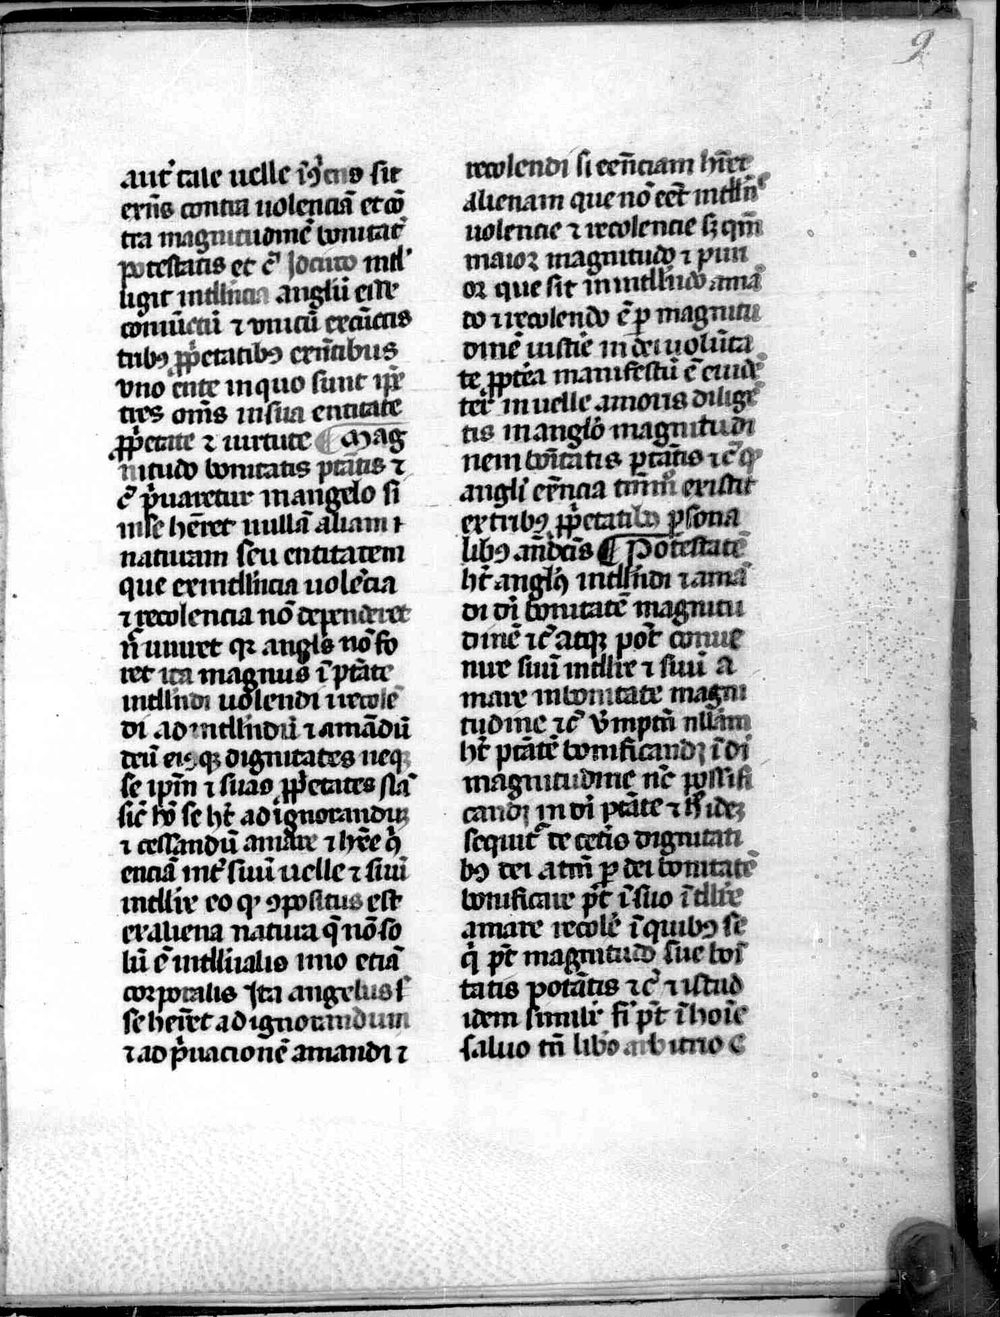 9
aut̃ tale uelle
sit
exñs contra uolenciã et cõ
tra magnitudinẽ bonitat̃
potestatis et c̃ Idcirco intl
ligit intllincia anglũ esse
cõiũctũ ⁊ unitũ
tribꝯ ꝓp̃etatibꝯ exñtibus
vno ente in quo sunt ip̃e
tres om̃s in sua entitate
ꝓp̃etate ⁊ uirtute ¶ Mag
nitudo bonitatis ptãtis ⁊
c̃ p̃uaretur in angelo si
in se hẽret nullã aliam
naturam seu entitatem
que ex intllincia uolẽcia
⁊ recolencia nõ dependeret
angls nõ fo
ret ita magnus ĩ ptãte
intllindi uolendi ⁊ recolẽ
di ad intllindũ ⁊ amãdũ
deũ eiꝯqꝫ dignitates neqꝫ
se ip̃m ⁊ suas ꝓp̃etates
sic̃ se ht̃ ad ignorandũ
⁊ cessandũ amare ⁊ hr̃e
enciã int̃ suũ uelle ⁊ suũ
intllir̃e eo ꝙ ꝯpositus est
ex aliena natura q̃ nõ so
lũ ẽ intllĩualis imo etiã
corporalis Ita angelus
se hẽret ad ignorandum
⁊ ad p̃uacionẽ amandi ⁊
recolendi si eẽnciam hr̃et
alienam que nõ eẽt intllñ
uolencie ⁊ recolencie sꝫ qm̃
maior magnitudo ⁊ pur
or que sit in intllindo amã
do ⁊ recolendo ẽ ꝑ magnitu
dinẽ iusticiẽ in dei uolũta
te ꝓpt̃ea manifestũ ẽ euidẽ
ter in uelle amoris dilige
tis in anglo magnitudi
nem bõitatis ptãtis ⁊ c̃ ꝙ
angli eẽncia existit
ex tribꝯ ꝓp̃etatibꝯ ꝑsona
libꝯ añdc̃is ¶ Potestatẽ
ht̃ anglꝯ intllindi ⁊ amã
di di bonitatẽ magnitu
dinẽ ⁊ c̃ atqꝫ pot̃ conue
nire suũ intllire ⁊ suũ a
mare in bonitate magni
tudine ⁊ c̃ nllam
ht̃ ptãtẽ bonificandi ĩ di
magnitudine nc̃
candi in di ptãte ⁊
sequit̃ de cetis dignitati
bꝯ dei atm̃ ꝑ dei bonitatẽ
bonificare pt̃ ĩ suo ĩtllir̃e
amare recolẽ ĩ quibꝯ se
pt̃ magnitudo sue boĩ
tatis potãtis ⁊ c̃ ⁊ istud
idem simili fi pt̃ ĩ hoĩe
saluo tñ libo arbitrio